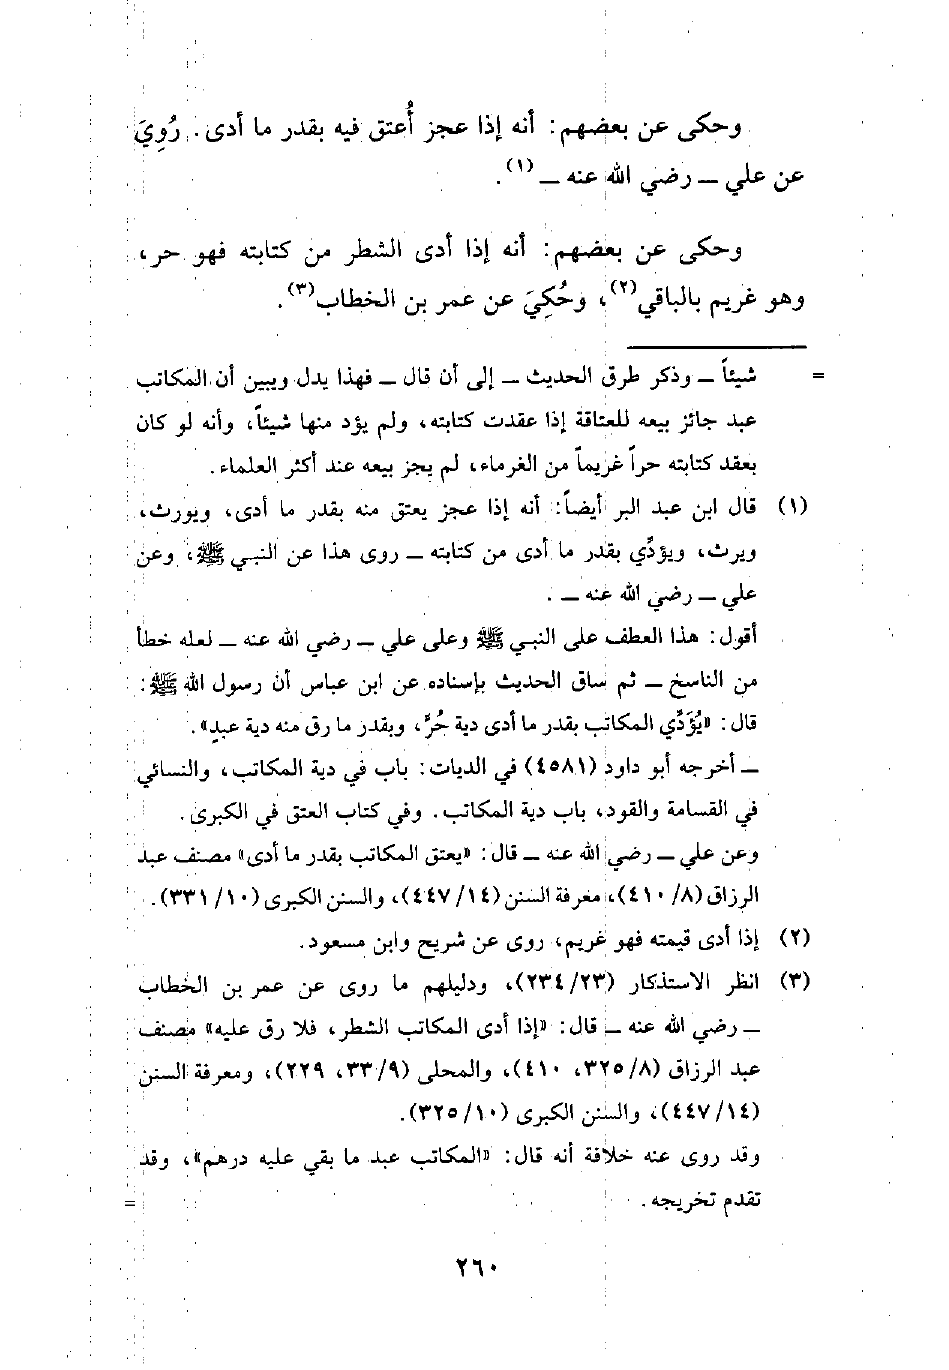 وحكى عن بعضهم: أنه إذا عجز أُعتق فيه بقدر ما أدى. رُوِيَ
عن علي ـ رضي الله عنه ـ (١).
وحكى عن بعضهم: أنه إذا أدى الشطر من كتابته فهو حر،
وهو غريم بالباقي(٢)، وحُكِيَ عن عمر بن الخطاب(٣).
= شيئاً ـ وذكر طرق الحديث ـ إلى أن قال ـ فهذا يدل ويبين أن المكاتب
عبد جائز بيعه للعتاقة إذا عقدت كتابته، ولم يؤد منها شيئاً، وأنه لو كان
بعقد كتابته حراً غريماً من الغرماء، لم يجز بيعه عند أكثر العلماء.
(١) قال ابن عبد البر أيضاً: أنه إذا عجز يعتق منه بقدر ما أدى، ويورث،
ويرث، ويؤدِّي بقدر ما أدى من كتابته ـ روى هذا عن النبي ﷺ، وعن
علي ـ رضي الله عنه ـ .
أقول: هذا العطف على النبي ﷺ وعلى علي ـ رضي الله عنه ـ لعله خطأ
من الناسخ ـ ثم ساق الحديث بإسناده عن ابن عباس أن رسول الله ﷺ:
قال: «يُؤَدِّي المكاتب بقدر ما أدى دية حُرٍّ، وبقدر ما رق منه دية عبدٍ».
ـ أخرجه أبو داود (٤٥٨١) في الديات: باب في دية المكاتب، والنسائي
في القسامة والقود، باب دية المكاتب. وفي كتاب العتق في الكبرى.
وعن علي ـ رضي الله عنه ـ قال: «يعتق المكاتب بقدر ما أدى» مصنف عبد
الرزاق (٨/ ٤١٠)، معرفة السنن (١٤/ ٤٤٧)، والسنن الكبرى (١٠/ ٣٣١).
(٢) إذا أدى قيمته فهو غريم، روى عن شريح وابن مسعود.
(٣) انظر الاستذكار (٢٣/ ٢٣٤)، ودليلهم ما روى عن عمر بن الخطاب
ـ رضي الله عنه ـ قال: «إذا أدى المكاتب الشطر، فلا رق عليه» مصنف
عبد الرزاق (٨/ ٣٢٥، ٤١٠)، والمحلى (٩/ ٣٣، ٢٢٩)، ومعرفة السنن
(١٤/ ٤٤٧)، والسنن الكبرى (١٠/ ٣٢٥).
وقد روى عنه خلافة أنه قال: «المكاتب عبد ما بقي عليه درهم»، وقد
تقدم تخريجه. =
٢٦٠